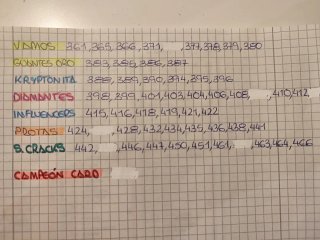 VAMOS 361,365,366,371, ,377,378,379,380
GUANTES ORO 383,385,386,387
KRYPTONITA 388,389,390,394,395,396
DIAMANTES 398,399,401,403,404,406,408, ,410,412
INFLUENCERS 415,416,418,419,421,422
PROTAS 424, ,428,432,434,435,436,438,441
B. CRACKS 442, ,446,447,450,451,461, ,463,464,466
CAMPEÓN CARD